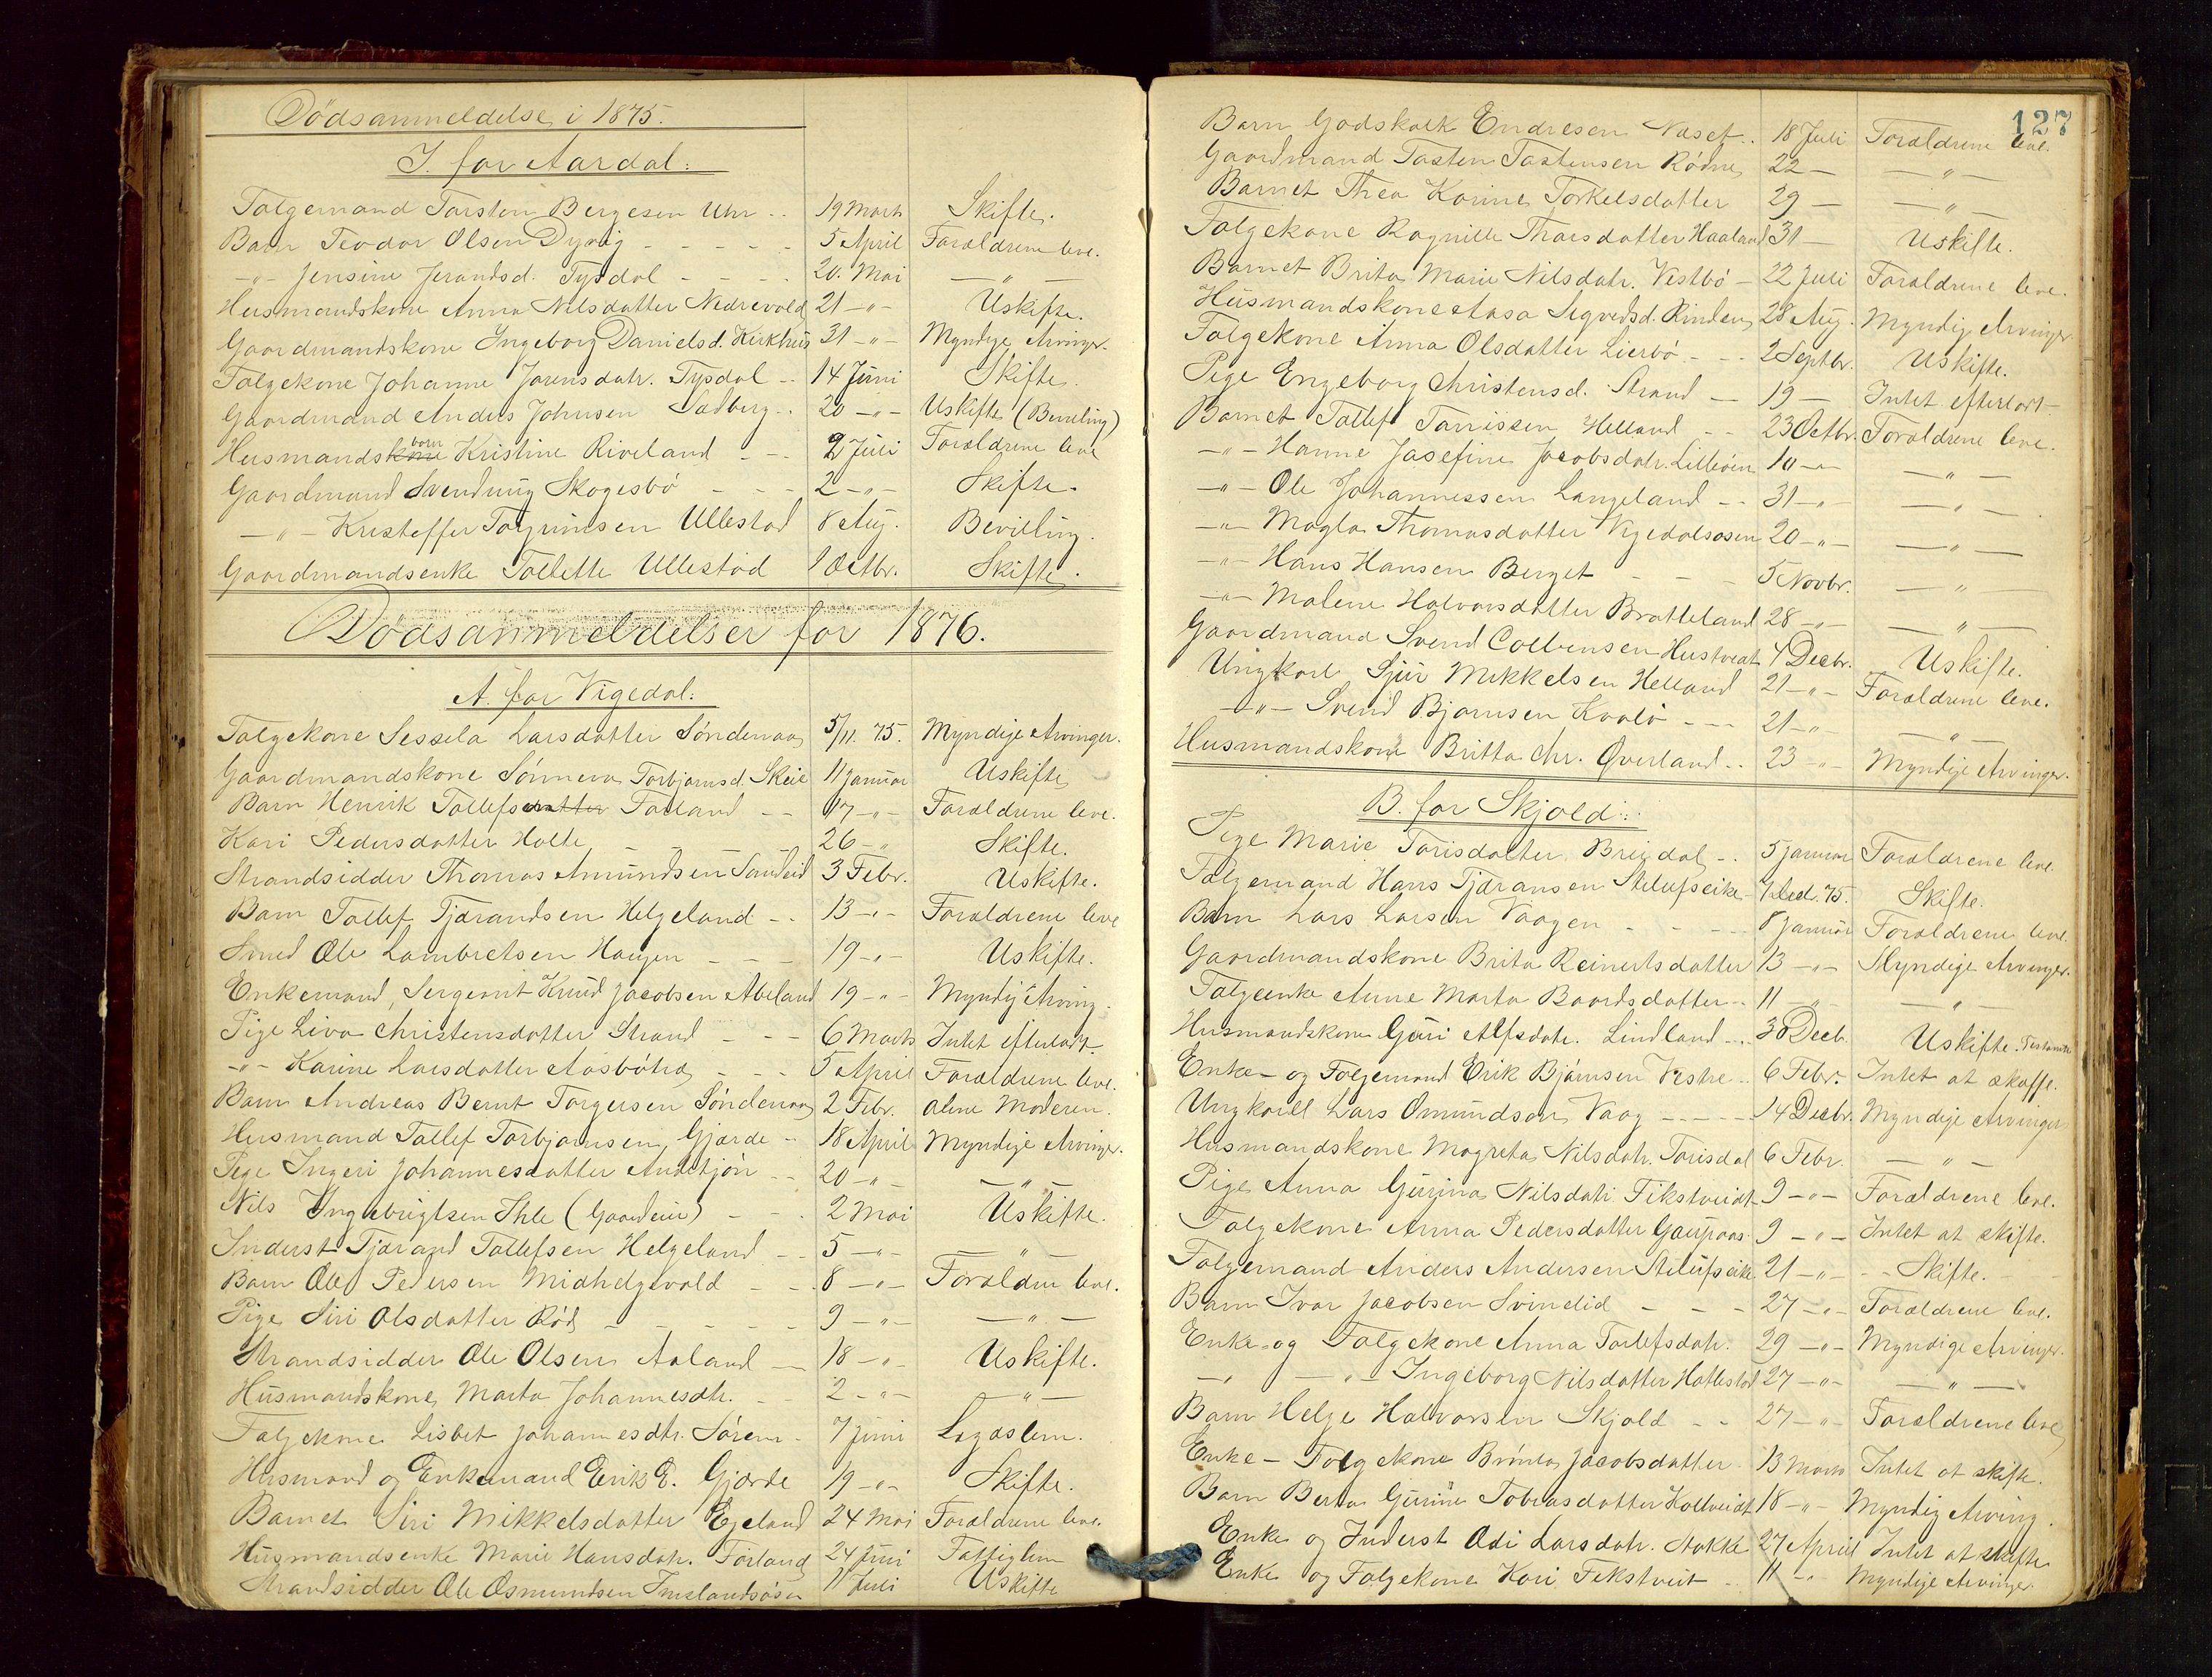 Dödsanmeldelse i 1875.
I. for Aardal:
Folgemand Torsten Bergesen Uhr 19 Marts Skifte.
Barn Teodor Olsen Dyvig 5 April Forældrene leve.
-"- Jensine Jerandsd. Tysdal 20. Mai -"-
Husmandskone Anna Nilsdatter Nedrevold 21 -"- Uskifte.
Gaardmandskone Ingeborg Danielsd. Kirkhus 31 -"- Myndige Arvinger.
Folgekone Johanne Jorensdatr. Tysdal 14 Juni Skifte.
Gaardmand Anders Johnsen Sadberg 20 -"- Uskifte (Bevilling)
Husmandsbarn Kristine Riveland 2 Juli Forældrene leve
Gaardmand Svendung Skogesbö 2 -"- Skifte.
-"- Kristoffer Torgrimsen Ullestad 8 Aug. Bevilling.
Gaardmandsenke Tollette Ullestad 1 Octbr. Skifte.
Dödsanmeldelser for 1876.
A. for Vigedal:
Folgekone Sessela Larsdatter Söndenaa 5/11. 75. Myndige Arvinger.
Gaardmandskone Sönneva Torbjornsd. Skeie 11 Januar Uskifte
Barn Henrik Tollefsdatter Folland 17 -"- Forældrene leve.
Kari Pedersdatter Holte 26 -"- Skifte.
Strandsidder Thomas Amundsen Sandeid 3 Febr. Uskifte.
Barn Tollef Tjærandsen Helgeland 13 -"- Forældrene leve
Smed Ole Lambretsen Haugen 19 -"- Uskifte.
Enkemand, Sergeant Knud Jacobsen Abeland 19 -"- Myndig Arving.
Pige Liva Christensdatter Strand 6 Marts Intet efterladt.
-"- Karine Larsdatter 5 April Forældrene leve.
Barn Andreas Bernt Torgersen Söndenaa 2 Febr. alene Moderen.
Husmand Tollef Torbjørnsen Gjærde 18 April Myndige Arvinger.
Pige Ingeri Johannesdatter 20 -"- -"-
Nils Ingebrigtsen Ihle (Gaardeier) 2 Mai Uskifte.
Inderst Tjærand Tollefsen Helgeland 5 -"- "
Barn Ole Pedersen Midhelgevold 8 -"- Forældrene leve.
Pige Siri Olsdatter Röd 9 -"- -"-
Strandsidder Ole Olsen Aaland 18 -"- Uskifte.
Husmandskone Marta Johannesdtr. 2 -"- -"-
Folgekone Lisbet Johannesdtr. Sörem 7 Juni Legdslem.
Husmand og Enkemand Erik E. Gjærde 19 -"- Skifte.
Barnet Siri Mikkelsdatter Egeland 24 Mai Forældrene leve.
Husmandsenke Marie Hansdatr. Förland 24 Juni Fattiglem
Strandsidder Ole Osmundsen Imslandsösen 11 Juli Uskifte
127
Barn Godskalk Endresen Næset 18 Juli Forældrene leve.
Gaardmand Tosten Tostensen Rödne 22 - -"-
Barnet Thea Karine Torkelsdatter 29 - -"-
Folgekone Ragnille Thorsdatter Haaland 31 - Uskifte.
Barnet Brita Marie Nilsdatr. Vestbö 22 Juli Forældrene leve.
Husmandskone Aasa Sigvedsd. Rinden 28 Aug. Myndige Arvinger
Folgekone Anna Olsdatter Lierbö 2 Septbr. Uskifte.
Pige Engeborg Christensd. Strand 19 - Intet efterladt.
Barnet Tollef Tonnissen Helland 23 Octbr. Forældrene leve.
-"- Hanne Josefine Jacobsdatr. Lilleöen 10 -"- -"-
-"- Ole Johannessen Langeland 31 -"- -"-
-"- Magla Thomasdatter Vigedalsosen 20 -"- -"-
-"- Hans Hansen Berget 5 Novbr. -"-
-"- Malene Halvorsdatter Bratteland 28 -"- -"-
Gaardmand Svend Colbensen Hustveit 4 Decbr. Uskifte.
Ungkarl Sjur Mikkelsen Helland 21 -"- Forældrene leve.
-"- Svend Bjørnsen Kvalö 21 -"- -"-
Husmandskone Britta Chr. Qverland 23 -"- Myndige Arvinger.
B. for Skjold:
Pige Marie Torisdatter Breidal 5 Januar Forældrene leve.
Folgemand Hans Tjæransen Stelufseike 7 Decb. 75. Skifte.
Barn Lars Larsen Vaagen 8 Januar Forældrene leve.
Gaardmandskone Brita Reinertsdatter 13 -"- Myndige Arvinger.
Folgeenke Anne Marta Baardsdatter 11 -"- -"-
Husmandskone Guri Alfsdatr. Lindland 30 Decb. Uskifte. Testamte
Enke- og Folgemand Erik Bjørnsen Vestre 6 Febr. Intet at skaffe.
Ungkarll Lars Omundsen Vaag 14 Decbr. Myndige Arvinger
Husmandskone Magreta Nilsdatr. Torisdal 6 Febr. -"-
Pige Anna Gurina Nilsdatr. Fikstveit 9 -"- Forældrene leve.
Folgekone Anna Pedersdatter Gaupaas 9 -"- Intet at skifte.
Folgemand Anders Andersen Stelufseike 21 -"- Skifte.
Barn Ivar Jacobsen Svindlid 27 -"- Forældrene leve.
Enke- og Folgekone Anna Torlefsdatr. 29 -"- Myndige Arvinger.
-"- -"- Ingeborg Nilsdatter Hattestad 27 -"- -"-
Barn Helge Halvorsen Skjold 27 -"- Forældrene leve
Enke- Folgekone Brönla Jacobsdatter 13 Marts Intet at skifte.
Barn Berta Gurine Tobiasdatter Holtveidt 18 -"- Myndig Arving.
Enke og Inderst Odi Larsdatr. Stakke 27 April Intet at skifte
Enke og Folgekone Kari Fikstveit 11 -"- Myndige Arvinger.